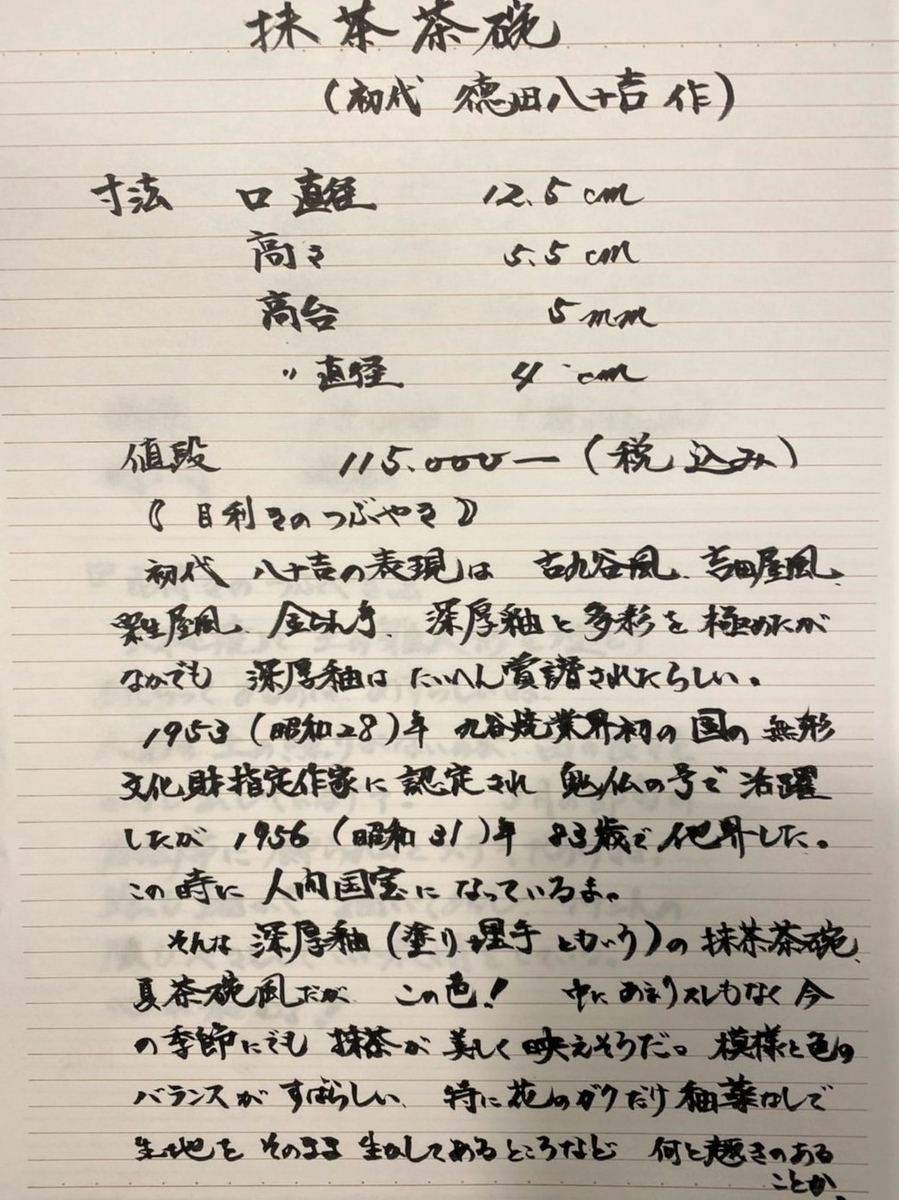 抹茶茶碗
(初代 徳田八十吉 作)
寸法 口直径 12.5cm
高さ 5.5cm
高台 5mm
〃直径 4cm
値段 115.000ー(税込み)
《目利きのつぶやき》
初代 八十吉の表現は 古九谷風、吉田屋風、
粟生屋風、金らん手、深厚釉と多彩を極めたが
なかでも 深厚釉は たいへん賞譜されたらしい。
1953(昭和28)年 九谷焼業界初の国の無形
文化財指定作家に認定され 魁仏の号で活躍
したが 1956(昭和31)年 83歳で他界した。
この時に人間国宝になっているよ。
そんな深厚釉(塗り埋手ともいう)の抹茶茶碗、
夏茶碗風だが この色! 中にあまりスレもなく今
の季節にでも 抹茶が美しく映えそうだ。模様と色の
バランスがすばらしい、特に花のガクだけ釉薬なしで
生地をそのまま生かしてあるところなど 何と趣きのある
ことか、